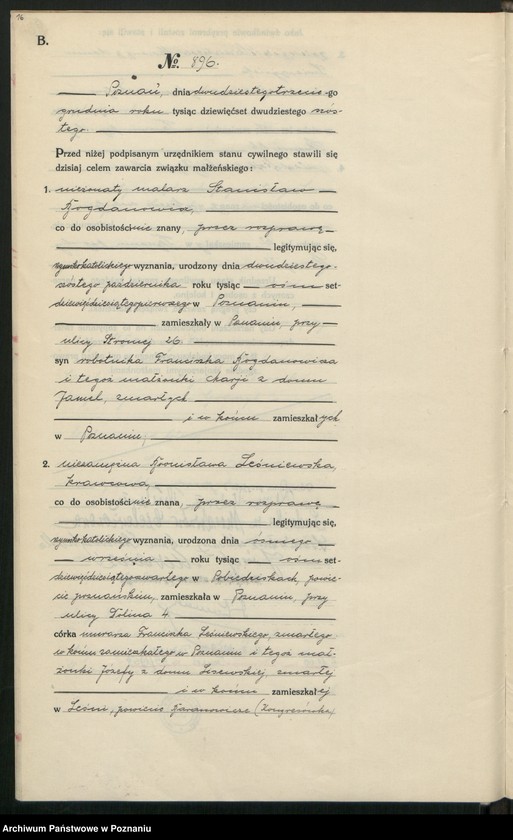 76
B.
№ 896.
Poznań, dnia dwudziestegotrzeciego
grudnia roku tysiąc dziewięćset dwudziestego szós-
tego.
Przed niżej podpisanym urzędnikiem stanu cywilnego stawili się
dzisiaj celem zawarcia związku małżeńskiego:
1. nieżonaty malarz Stanisław
Bogdanowicz,
co do osobistości nie znany, przez rozprawę
legitymując się,
rzymskokatolickiego wyznania, urodzony dnia dwudziestego-
szóstego października roku tysiąc ośmset-
dziewięćdziesiątegopierwszego w Poznaniu,
zamieszkały w Poznaniu, przy
ulicy Stromej 26.
syn robotnika Franciszka Bogdanowicza
i tegoż małżonki Marji z domu
zmarłych
i w końcu zamieszkałych
w Poznaniu;
2. niezamężna Bronisława Leśniewska,
krawcowa,
co do osobistości nie znana, przez rozprawę
legitymując się,
rzymskokatolickiego wyznania, urodzona dnia ósmego
września roku tysiąc ośmset-
dziewięćdziesiątegoczwartego w Pobiedziskach, powie-
cie poznańskim, zamieszkała w Poznaniu, przy
ulicy Dolina 4.
córka murarza Franciszka Leśniewskiego, zmarłego
w końcu zamieszkałego w Poznaniu i tegoż mał-
żonki Józefy z domu zmarłej
i w końcu zamieszkałej
w powiecie (Kongresówka)
Archiwum Państwowe w Poznaniu